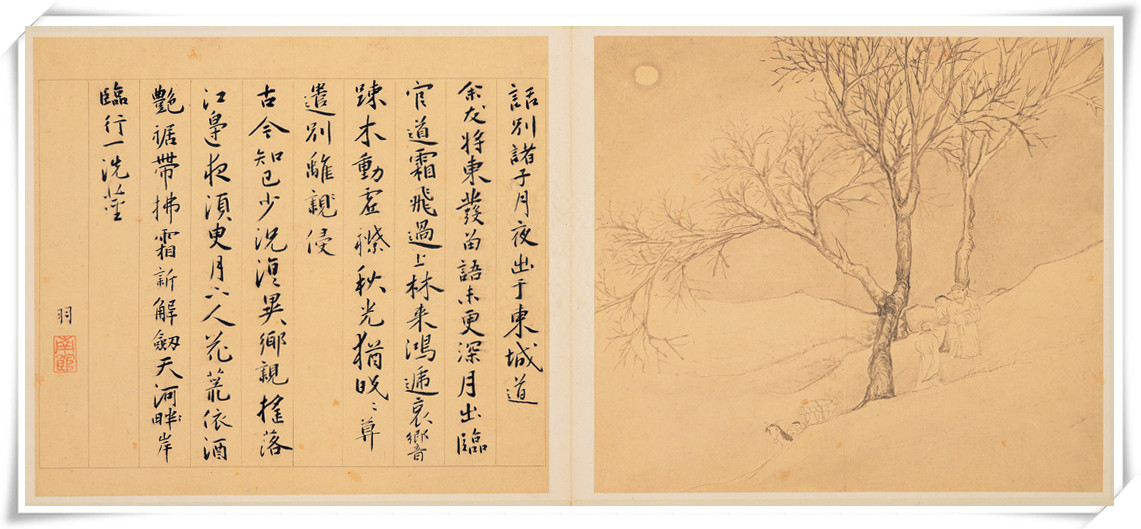 話別諸子月夜出于東城道
余友將東發語未更深月出臨
官道霜飛過上林来鴻遞哀響
踈木動虛襟秋光猶晚〻尊
遣別離侵
古今知己少況復異鄉親搖落
江皋夜須更月下人花依酒
艷裾帶拂霜新解劒天河畔岸
臨行一洗塵
羽